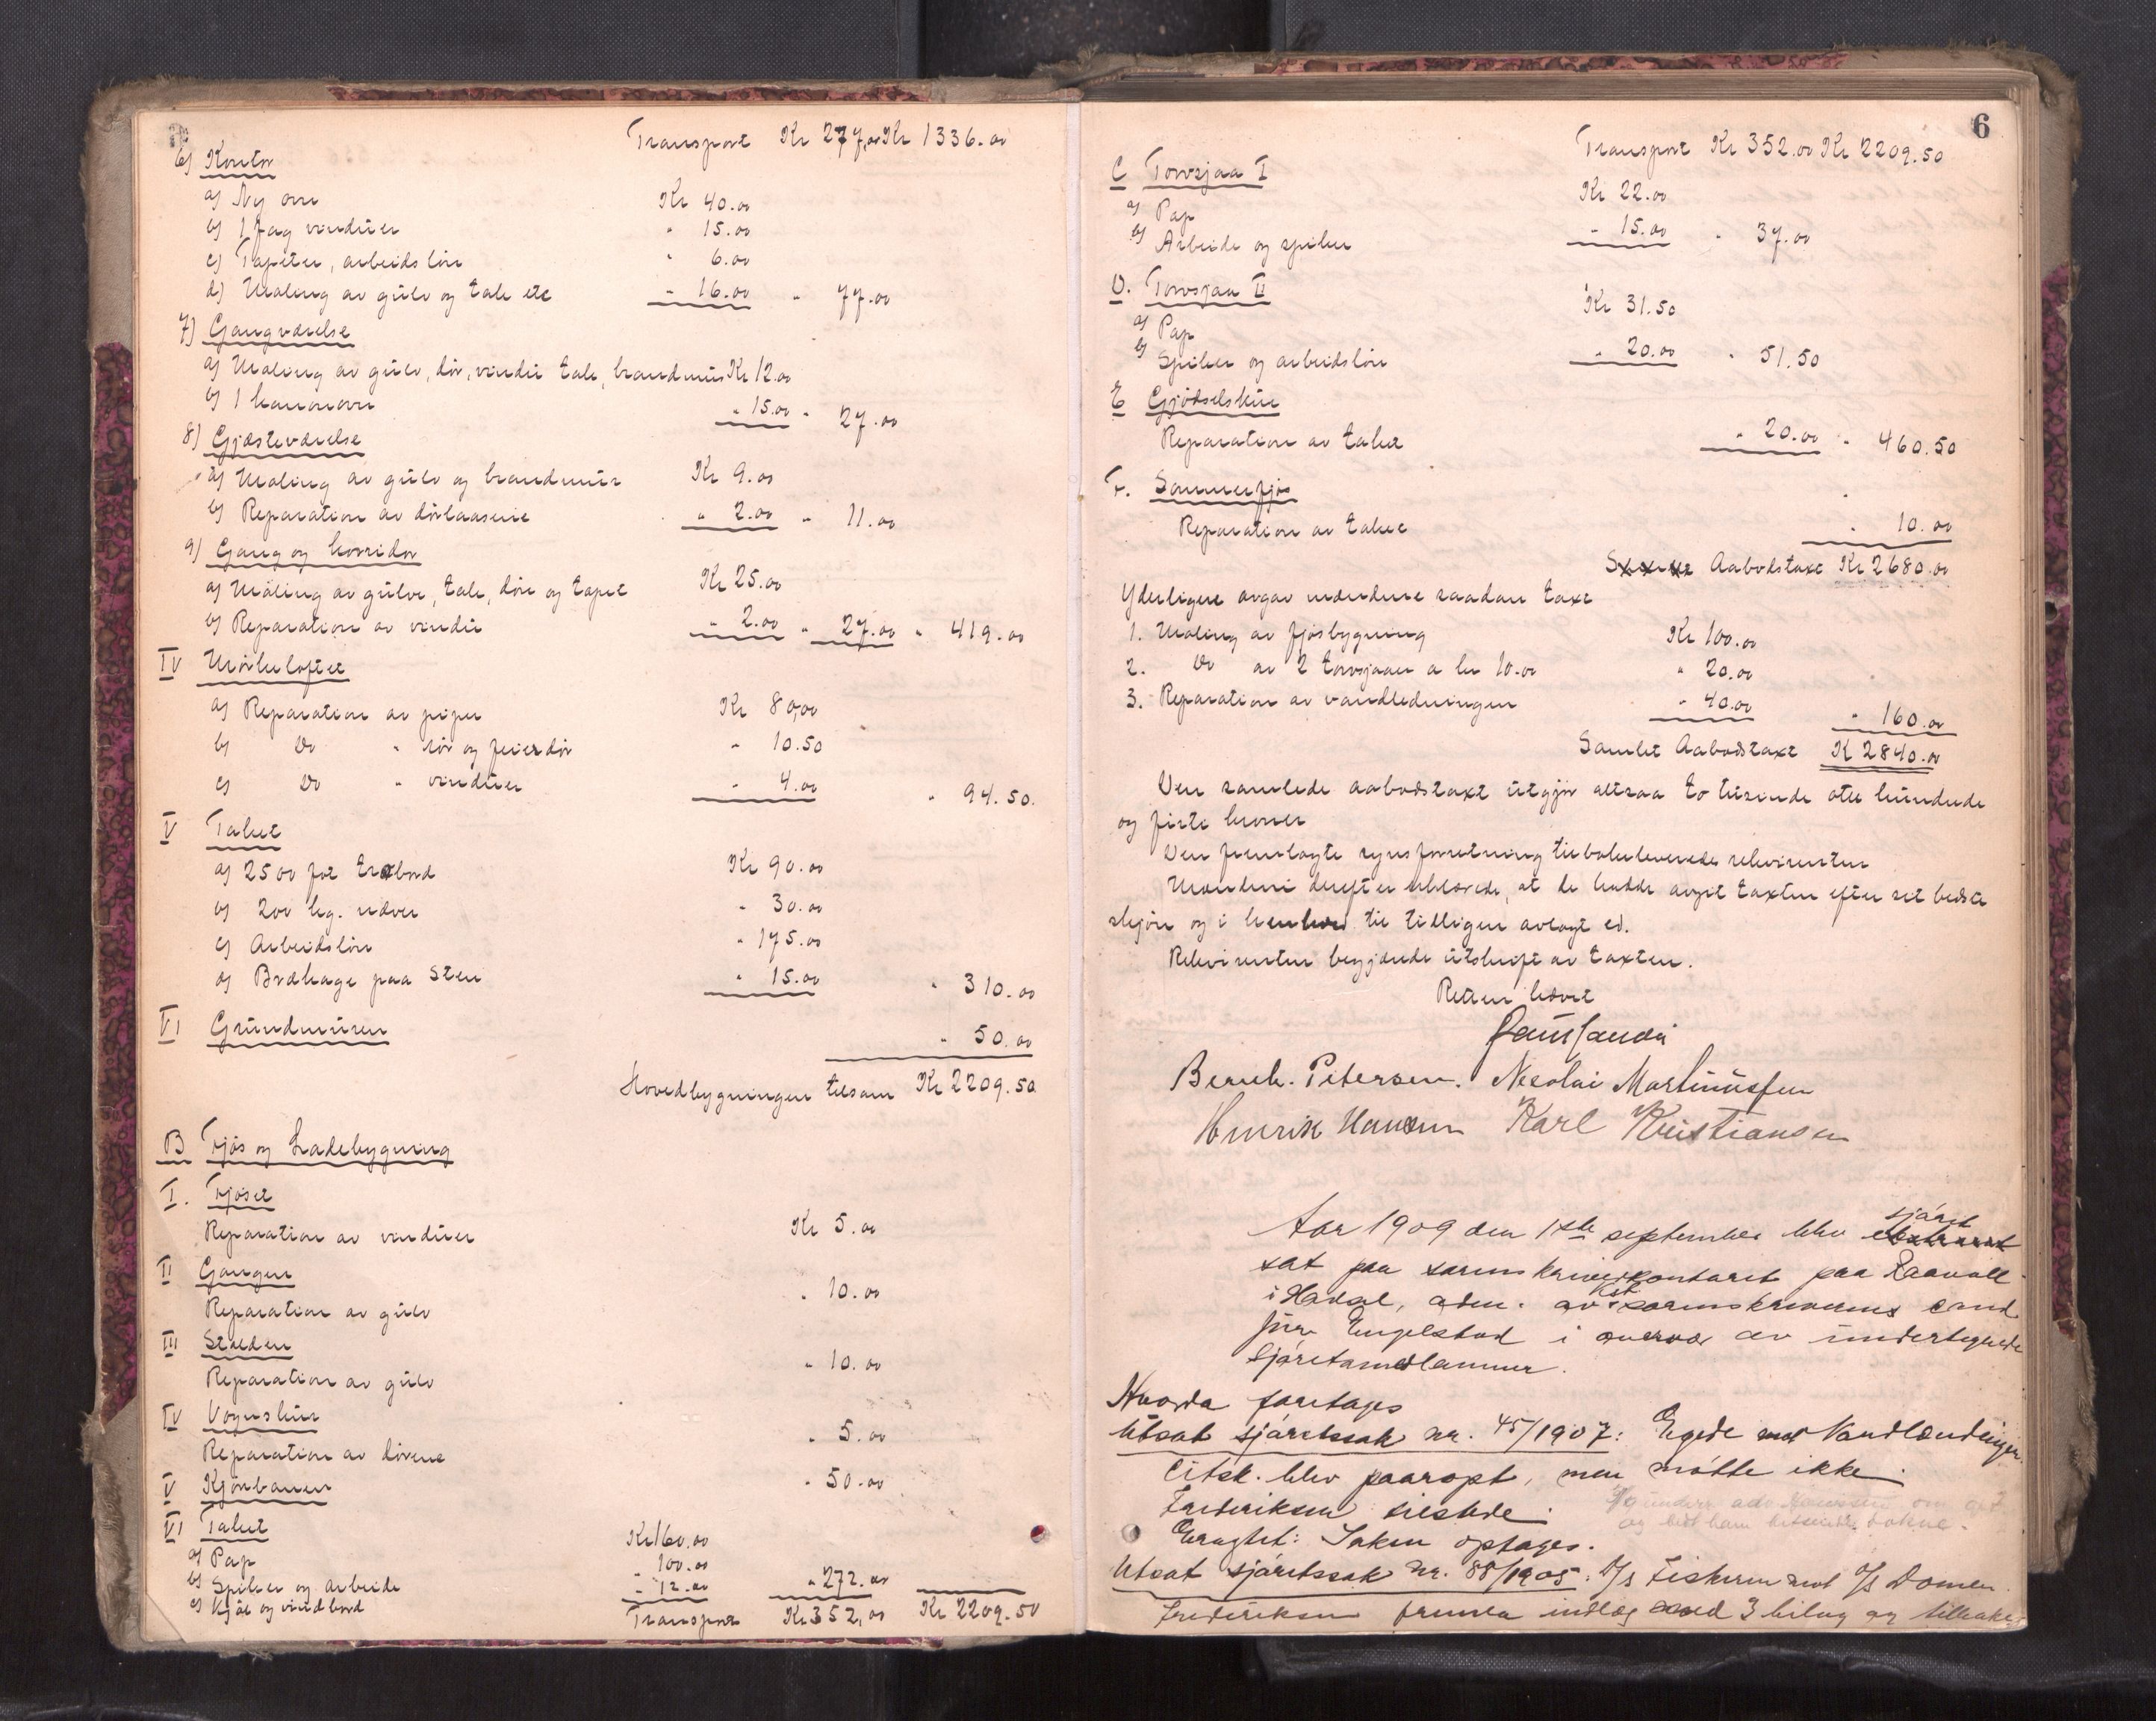 Transport Kr 277,00 Kr 1336.00
6) Kontor
a) Ny ovn Kr 40.00
b) 1 fag vinduer " 15.00
c) Tapeter, arbeidsløn " 6.00
d) Maling av gulv og tak etc " 16.00 " 77.00
7) Gangværelse
a) Maling av gulv, dør, vindu tak, brandmur Kr 12.00
b) 1 kanonovn " 15.00 " 27.00
8) Gjæsteværelse
a) Maling av gulv og brandmur Kr 9.00
b) Reparation av dørlaasene " 2.00 " 11.00
9) Gang og korridor
a) Maling av gulve, tak, døre og tapet Kr 25.00
b) Reparation av vindu " 2.00 " 27.00 " 419.00
IV Mørkeloftet
a) Reparation av piper Kr 80,00
b) Do " rør og feierdør " 10.50
c) Do " vinduer " 4.00 " 94.50.
V Taket
a) 2500 fot trobord Kr 90.00
b) 200 kg. næver " 30.00
c) Arbeidsløn " 175.00
d) Brækage paa Sten " 15.00 " 310.00
VI Grundmuren " 50.00
Hovedbygningen tilsam Kr 2209.50
B Fjøs og Ladebygning
I. Fjøset
Reparation av vinduer Kr 5.00
II Gangen
Reparation av gulv " 10.00
III Stalden
Reparation av gulv " 10.00
IV Vognskur
Reparation av dørene " 5.00
V Kjørbanen " 50.00
VI Taket
a) Pap Kr 160.00
b) Spiker og arbeide " 100.00
c) Kjøl og vindbord " 12.00 " 272.00
Transport Kr 352,00 Kr 2209.50
6
Transport Kr 352.00 Kr 2209.50
C Torvsjaa I
a) Pap Kr 22.00
b) Arbeide og spiker " 15.00 " 37.00
D. Torvsjaa II
a) Pap Kr 31.50
b) Spiker og arbeidsløn " 20.00 " 51.50
E Gjødselskur
Reparation av taket " 20.00 " 460.50
F. Sommerfjøs
Reparation av taket " 10.00
Aabodstaxt Kr 2680.00
Yderligere avgav mændene saadan taxt
1. Maling av fjøsbygning Kr 100.00
2. Do av 2 torvsjaaer a kr 10.00 " 20.00
3. Reparation av vandledningen " 40.00 " 160.00
Samlet Aabodstaxt K 2840.00
Den samlede aabodstaxt utgjør altsaa to tusinde otte hundrede
og firti kroner
Den fremlagte synsforretning tilbakeleveredes rekvirenten
Mændene derefter erklærede, at de hadde avgit taxten efter sit bedste
skjøn og i henhold til tidligere avlagt ed.
Rekvirenten begjærede utskrift av taxten.
Retten hævet
Bernh. Petersen. Nicolai Martinussen
Henrik Hansen Karl Kristiansen
Aar 1909 den 1ste september blev sjøret
sat paa sorenskriverkontoret paa Raavoll
i Hadsel, adm. av Kst sorenskriveren cand
jur Engelstad i overvær av undertegnede
Sjøretsmedlemmer.
Hvorda foretages
Utsat sjøretssak nr. 45/1907: Egede mot Vandlændinger
Citsk. blev paaropt, men møtte ikke.
Frederiksen tilstede.
Eragtet: Saken optages.
Utsat sjøretssak nr. 88/1905: D/s Fiskeren mot D/s Domen.
Frederiksen fremla indlæg med 3 bilag og tilbake-